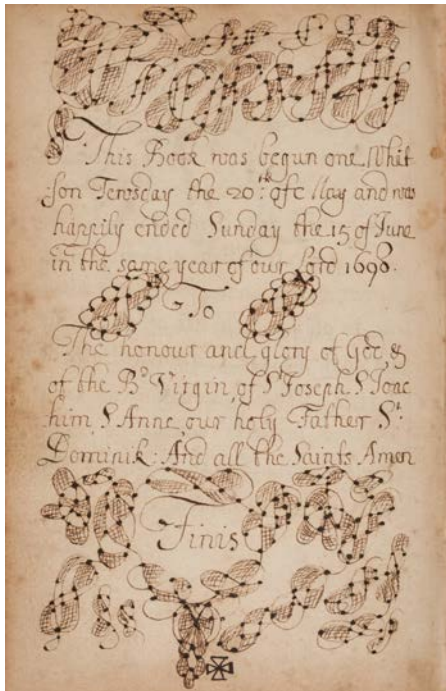 This Book was begun one Whit
son Tewsday the 20:th of May and now
happily ended Sunday the 15 of June
in the same year of our Lord 1698.
To
The honour and glory of God &
of the Bd Virgin, of St Joseph, St Joac
him, St Anne our holy Father St.
Dominik: And all the Saints Amen
Finis